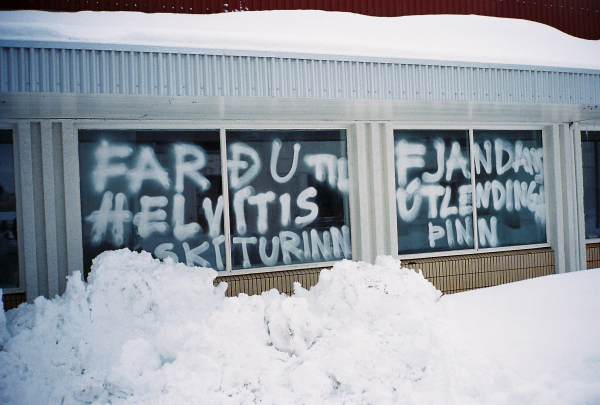 FARÐU TIL
HELVÍTIS
SKÍTURINN
FJANDANS
ÚTLENDINGUR
ÞINN